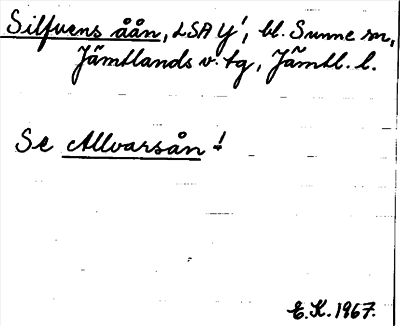 Silfuens åån, LSA Y', bl. Sunne sn,
Jämtlands v. tg, Jämtl. l.
Se Allvarsån !
E. K. 1967.